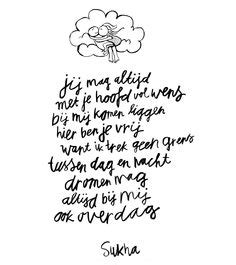 jij mag altijd
met je hoofd vol wens
bij mij komen liggen
hier ben je vrij
want ik trek geen grens
tussen dag en nacht
dromen mag
altijd bij mij
ook overdag
Sukha